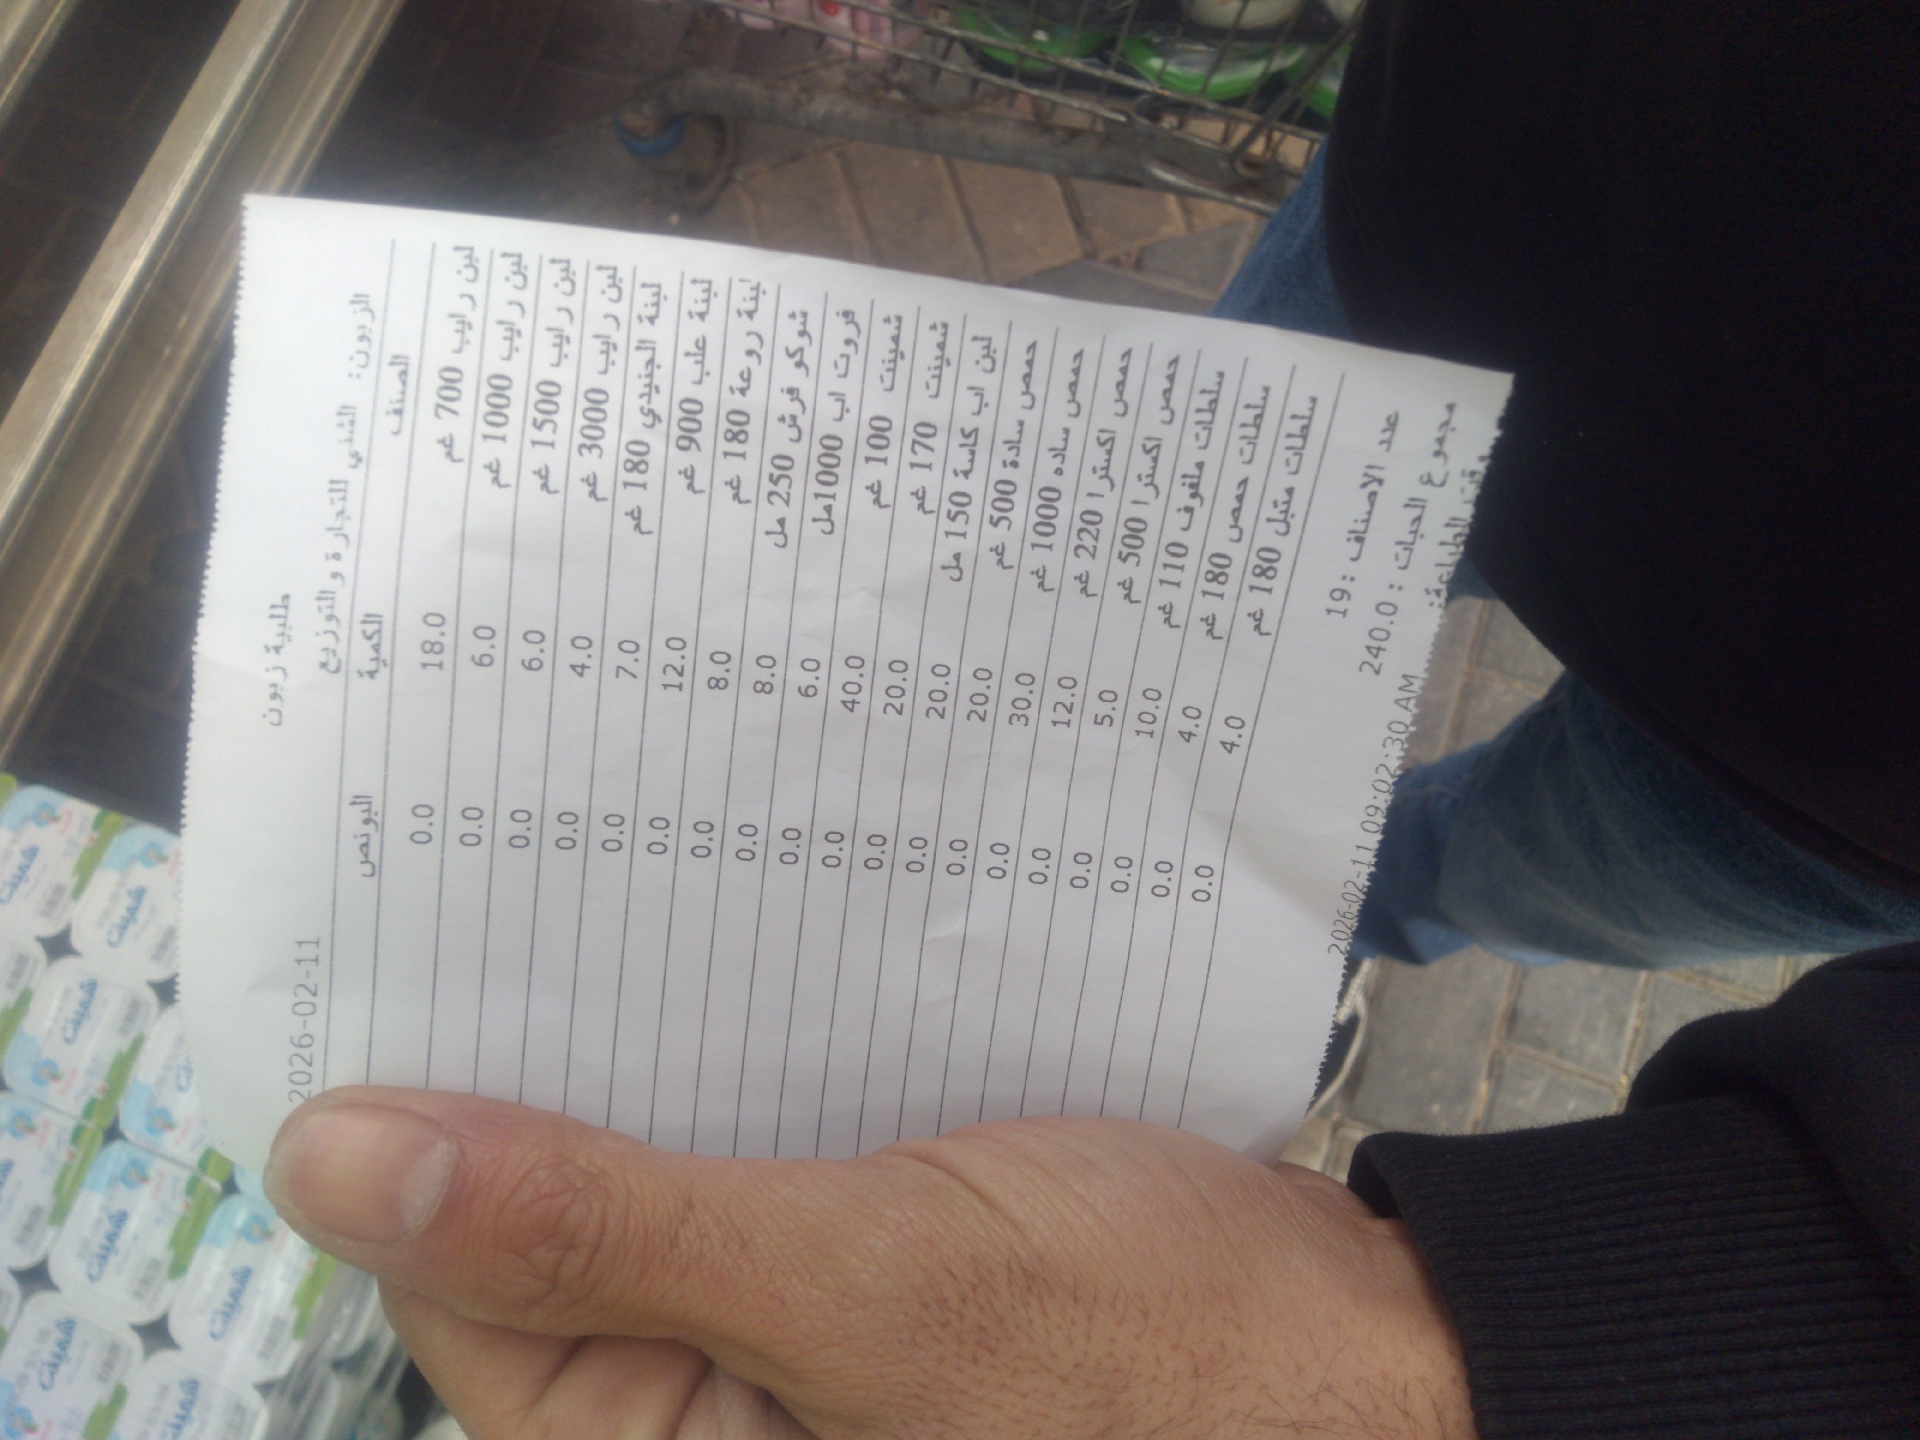 طلبية زبون
2026-02-11
الزبون: الشني للتجارة و التوزيع
الصنف الكمية البونص
لبن رايب 700 غم 18.0 0.0
لبن رايب 1000 غم 6.0 0.0
لبن رايب 1500 غم 6.0 0.0
لبن رايب 3000 غم 4.0 0.0
لبنة الجنيدي 180 غم 7.0 0.0
لبنة علب 900 غم 12.0 0.0
لبنة روعة 180 غم 8.0 0.0
شوكو فرش 250 مل 8.0 0.0
فروت اب 1000مل 6.0 0.0
شمينت 100 غم 40.0 0.0
شمينت 170 غم 20.0 0.0
لبن اب كاسة 150 مل 20.0 0.0
حمص سادة 500 غم 20.0 0.0
حمص ساده 1000 غم 30.0 0.0
حمص اكسترا 220 غم 12.0 0.0
حمص اكسترا 500 غم 5.0 0.0
سلطات ملفوف 110 غم 10.0 0.0
سلطات حمص 180 غم 4.0 0.0
سلطات متبل 180 غم 4.0 0.0
عدد الاصناف : 19
مجموع الحبات : 240.0
وقت الطباعة: 2026-02-11 09:02:30 AM
شمينت
شمينت
شمينت
شمينت
شمينت
شمينت